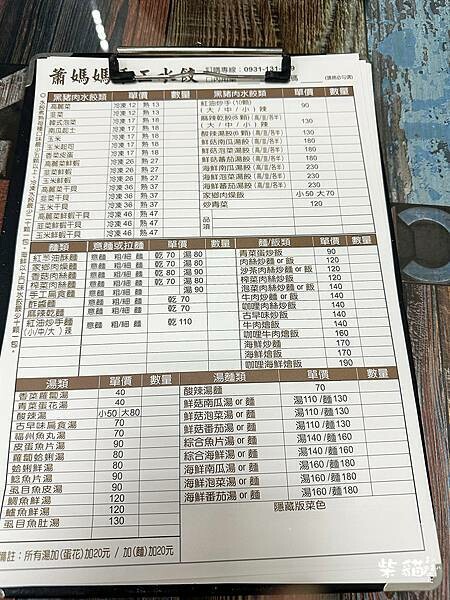 蕭媽媽手工水餃
訂購專線：0931-131-
(請務必勾選)
黑豬肉水餃類 單價 數量
高麗菜 冷凍 12 熟 13
韭菜 冷凍 12 熟 13
韓式泡菜 冷凍 17 熟 18
南瓜起士 冷凍 17 熟 18
玉米 冷凍 17 熟 18
玉米起司 冷凍 17 熟 18
香菜皮蛋 冷凍 17 熟 18
高麗菜鮮蝦 冷凍 26 熟 27
韭菜鮮蝦 冷凍 26 熟 27
玉米鮮蝦 冷凍 26 熟 27
高麗菜干貝 冷凍 36 熟 37
韭菜干貝 冷凍 36 熟 37
玉米干貝 冷凍 36 熟 37
高麗菜鮮蝦干貝 冷凍 46 熟 47
韭菜鮮蝦干貝 冷凍 46 熟 47
玉米鮮蝦干貝 冷凍 46 熟 47
黑豬肉水餃類 單價 數量
紅油炒手(10顆) (大/中/小)辣 90
麻辣乾餃(8顆)(高/韭/各半) (大/中/小)辣 130
酸辣湯餃(8顆)(高/韭/各半) 130
鮮菇南瓜湯餃(高/韭/各半) 180
鮮菇泡菜湯餃(高/韭/各半) 180
鮮菇番茄湯餃(高/韭/各半) 180
海鮮南瓜湯餃(高/韭/各半) 230
海鮮泡菜湯餃(高/韭/各半) 230
海鮮番茄湯餃(高/韭/各半) 230
家鄉肉燥飯 小50 大70
炒青菜 120
品項
麵類 意麵或拉麵 單價 數量
紅蔥油酥麵 意麵 粗/細麵 乾 70 湯 80
家鄉肉燥麵 意麵 粗/細麵 乾 70 湯 80
香菇肉絲麵 意麵 粗/細麵 乾 70 湯 80
榨菜肉絲麵 意麵 粗/細麵 乾 80 湯 90
手工扁食麵 意麵 粗/細麵 湯 90
炸醬麵 意麵 粗/細麵 乾 70
麻辣乾麵 意麵 粗/細麵 乾 70
紅油炒手麵 (小/中/大)辣 意麵 粗/細麵 乾 110
麵/飯類 單價 數量
青菜蛋炒飯 90
肉絲炒麵 or 飯 120
沙茶肉絲炒麵or飯 120
榨菜肉絲炒飯 120
泡菜肉絲炒麵or飯 140
牛肉炒麵 or 飯 140
咖哩肉絲炒飯 140
古早味炒飯 140
牛肉燴飯 160
咖哩牛肉燴飯 160
海鮮炒麵 170
海鮮燴飯 170
咖哩海鮮燴飯 190
湯類 單價 數量
香菜蘿蔔湯 40
青菜蛋花湯 40
酸辣湯 小50 大80
古早味扁食湯 70
福州魚丸湯 70
皮蛋魚片湯 90
蘿蔔蛤蜊湯 80
蛤蜊鮮湯 80
鯰魚片湯 90
虱目魚皮湯 90
鯛魚鮮湯 120
鱸魚鮮湯 120
虱目魚肚湯 130
湯麵類 單價 數量
酸辣湯麵 70
鮮菇南瓜湯 or 麵 湯110 /麵130
鮮菇泡菜湯 or 麵 湯110 /麵130
鮮菇番茄湯 or 麵 湯110 /麵130
綜合魚片湯 or 麵 湯140 /麵160
綜合海鮮湯 or 麵 湯140 /麵160
海鮮南瓜湯 or 麵 湯160 /麵180
海鮮泡菜湯 or 麵 湯160 /麵180
海鮮番茄湯 or 麵 湯160 /麵180
隱藏版菜色
備註：所有湯加(蛋花)加20元 / 加(麵)加20元
柴貓